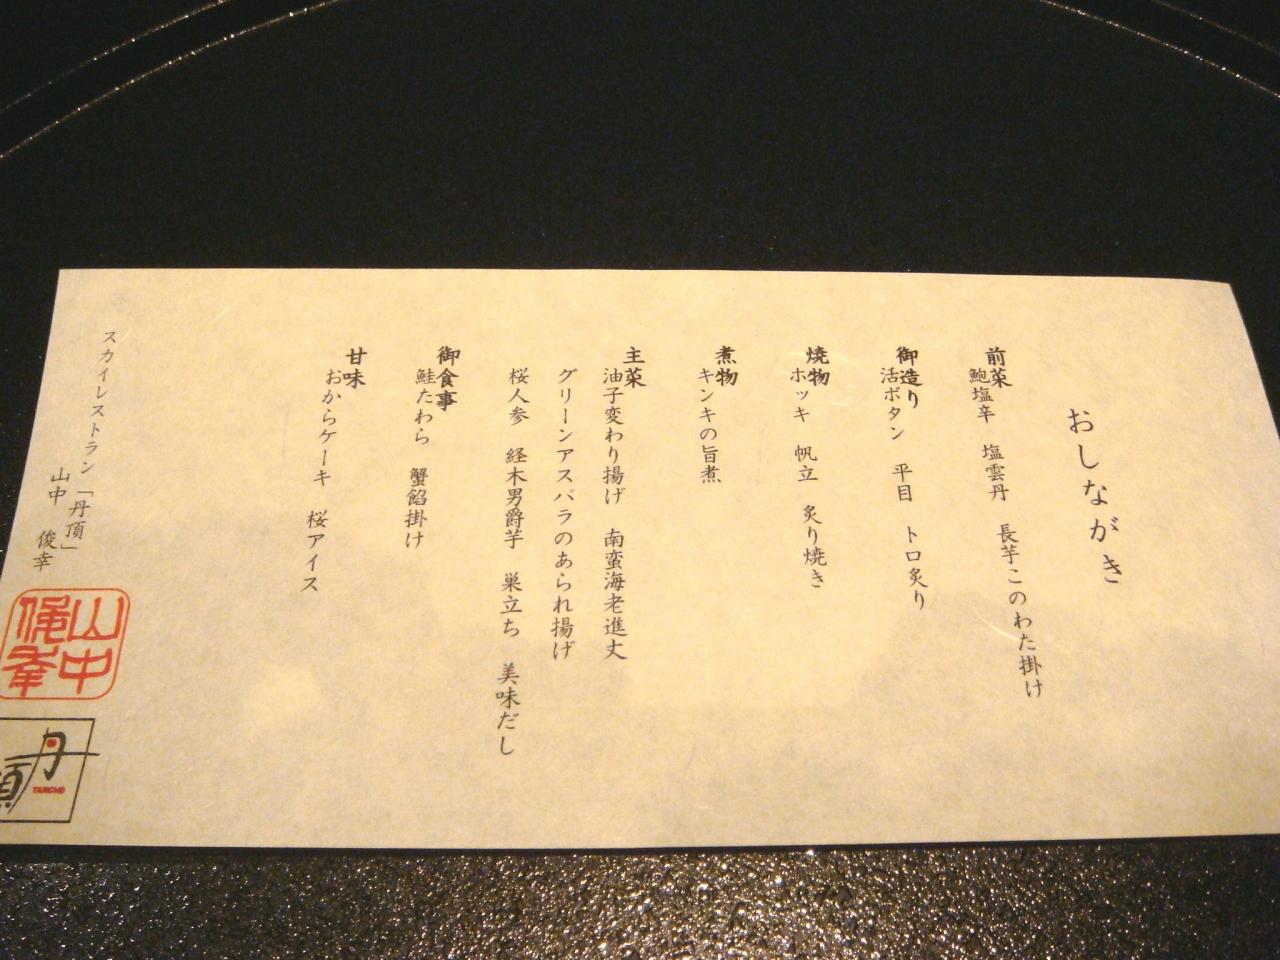 おしながき
前菜
鮑塩辛　塩雲丹　長芋このわた掛け
御造り
活ボタン　平目　トロ炙り
焼物
ホッキ　帆立　炙り焼き
煮物
キンキの旨煮
主菜
油子変わり揚げ　南蛮海老進丈
グリーンアスパラのあられ揚げ
桜人参　経木男爵芋　巣立ち　美味だし
御食事
鮭たわら　蟹餡掛け
甘味
おからケーキ　桜アイス
スカイレストラン「丹頂」
山中　俊幸
山中
俊幸
丹
頂
TANCHO